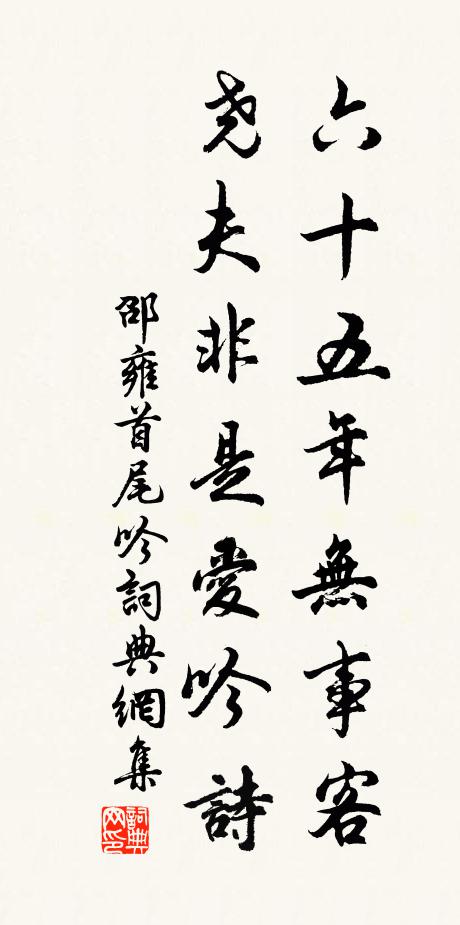 六十五年無事客
堯夫非是愛吟詩
邵雍首尾吟詞典網集
詞典网印